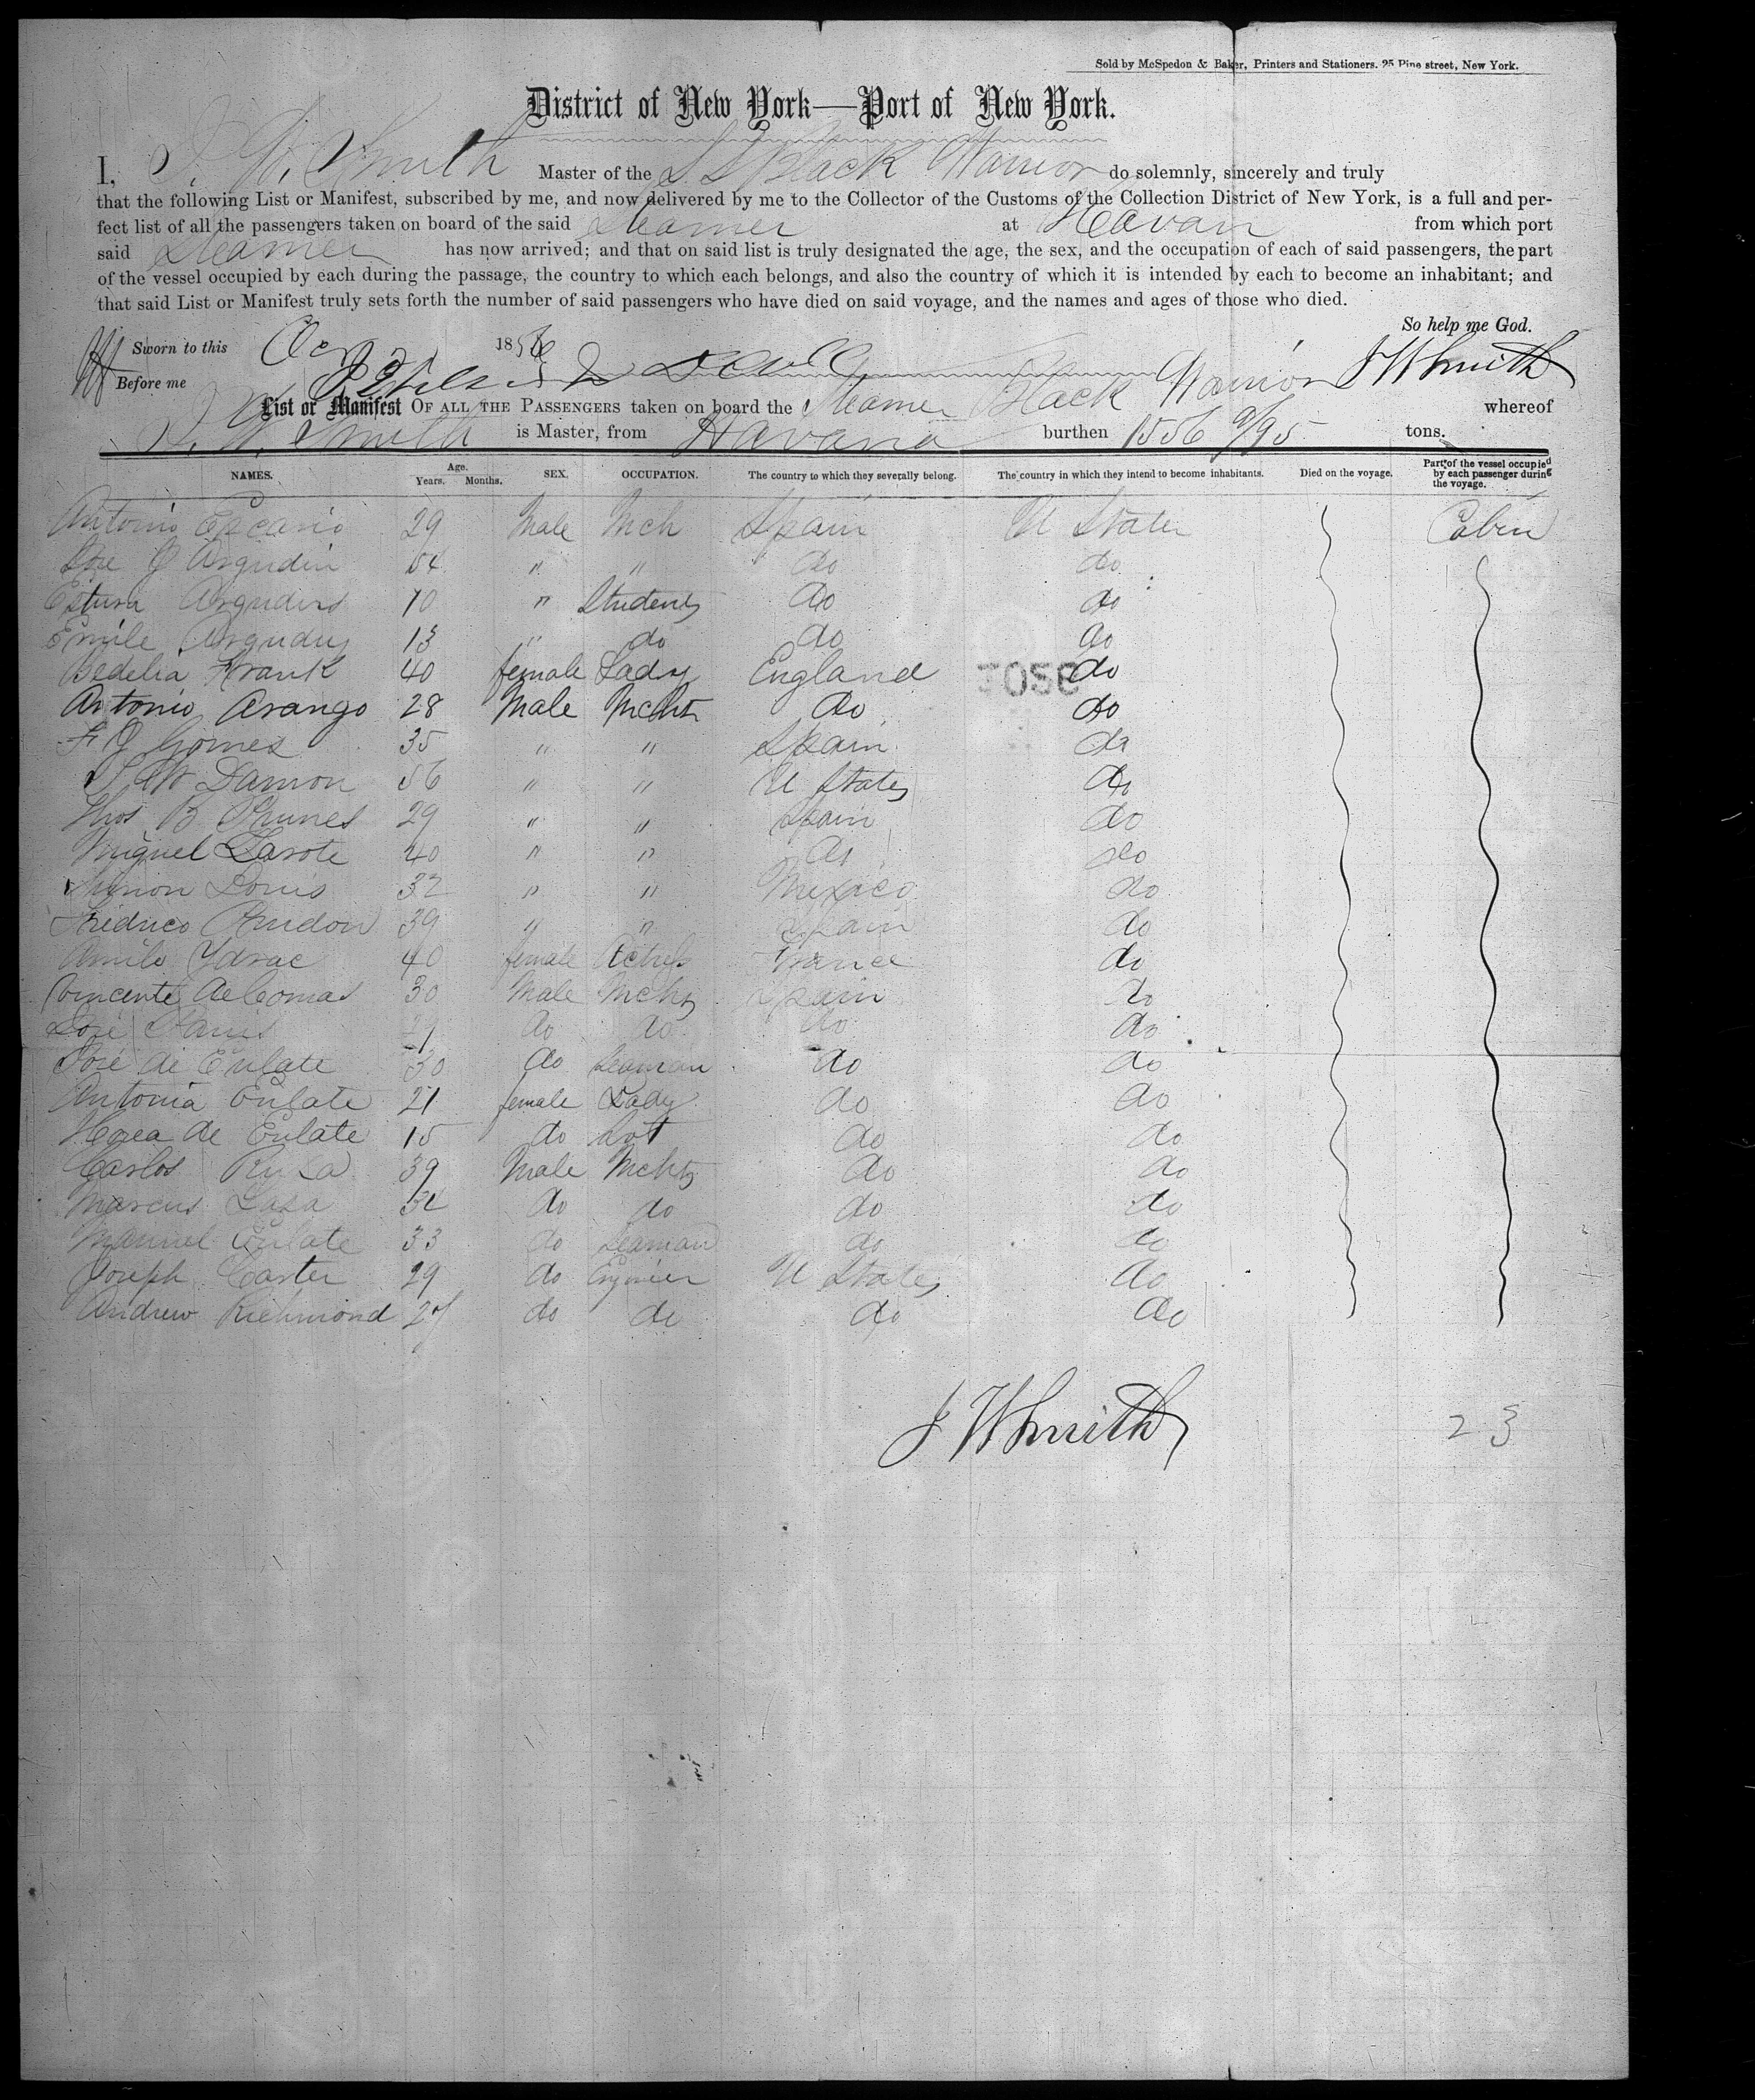 Sold by McSpedon & Baker, Printers and Stationers. 25 Pine street, New York.
District of New York—Port of New York.
I, J. W. Smith Master of the S.S Black Warrior do solemnly, sincerely and truly
that the following List or Manifest, subscribed by me, and now delivered by me to the Collector of the Customs of the Collection District of New York, is a full and per-
fect list of all the passengers taken on board of the said Steamer at Havan from which port
said Steamer has now arrived; and that on said list is truly designated the age, the sex, and the occupation of each of said passengers, the part
of the vessel occupied by each during the passage, the country to which each belongs, and also the country of which it is intended by each to become an inhabitant; and
that said List or Manifest truly sets forth the number of said passengers who have died on said voyage, and the names and ages of those who died.
So help me God.
Sworn to this 1856 J W Smith
Before me
List or Manifest OF ALL THE PASSENGERS taken on board the Steamer Black Warrior whereof
J. W. Smith is Master, from Havana burthen 1556 9/95 tons.
NAMES. Age. Years. Months. SEX. OCCUPATION. The country to which they severally belong. The country in which they intend to become inhabitants. Died on the voyage. Part of the vessel occupied by each passenger during the voyage.
Antonio Escario 29 Male Mch Spain U States Cabin
Jose J Argudin 54 " " do do
Argudin 10 " Students do do
Emile Argudin 13 " do do do
Bedelia Frank 40 female Lady England do
Antonio Arango 28 Male Mcht do do
F G Gomes 35 " " Spain do
S W Damon 56 " " U States do
Thos B 29 " " Spain do
Miguel Lasote 40 " " do do
Simon Louis 32 " " Mexico do
39 " " Spain do
Ydrac 40 female Actress France do
Vincente de Comas 30 Male Mcht Spain do
José do do do do
José de Eulate 30 do Seaman do do
Antonia Eulate 21 female Lady do do
de Eulate 15 do do do
Carlos 39 Male Mcht do do
Marcus Lasa do do do do
Manuel Eulate 33 do Seaman do do
Joseph Carter 29 do Enginier U States do
Andrew Richmond do do do do
J W Smith
23